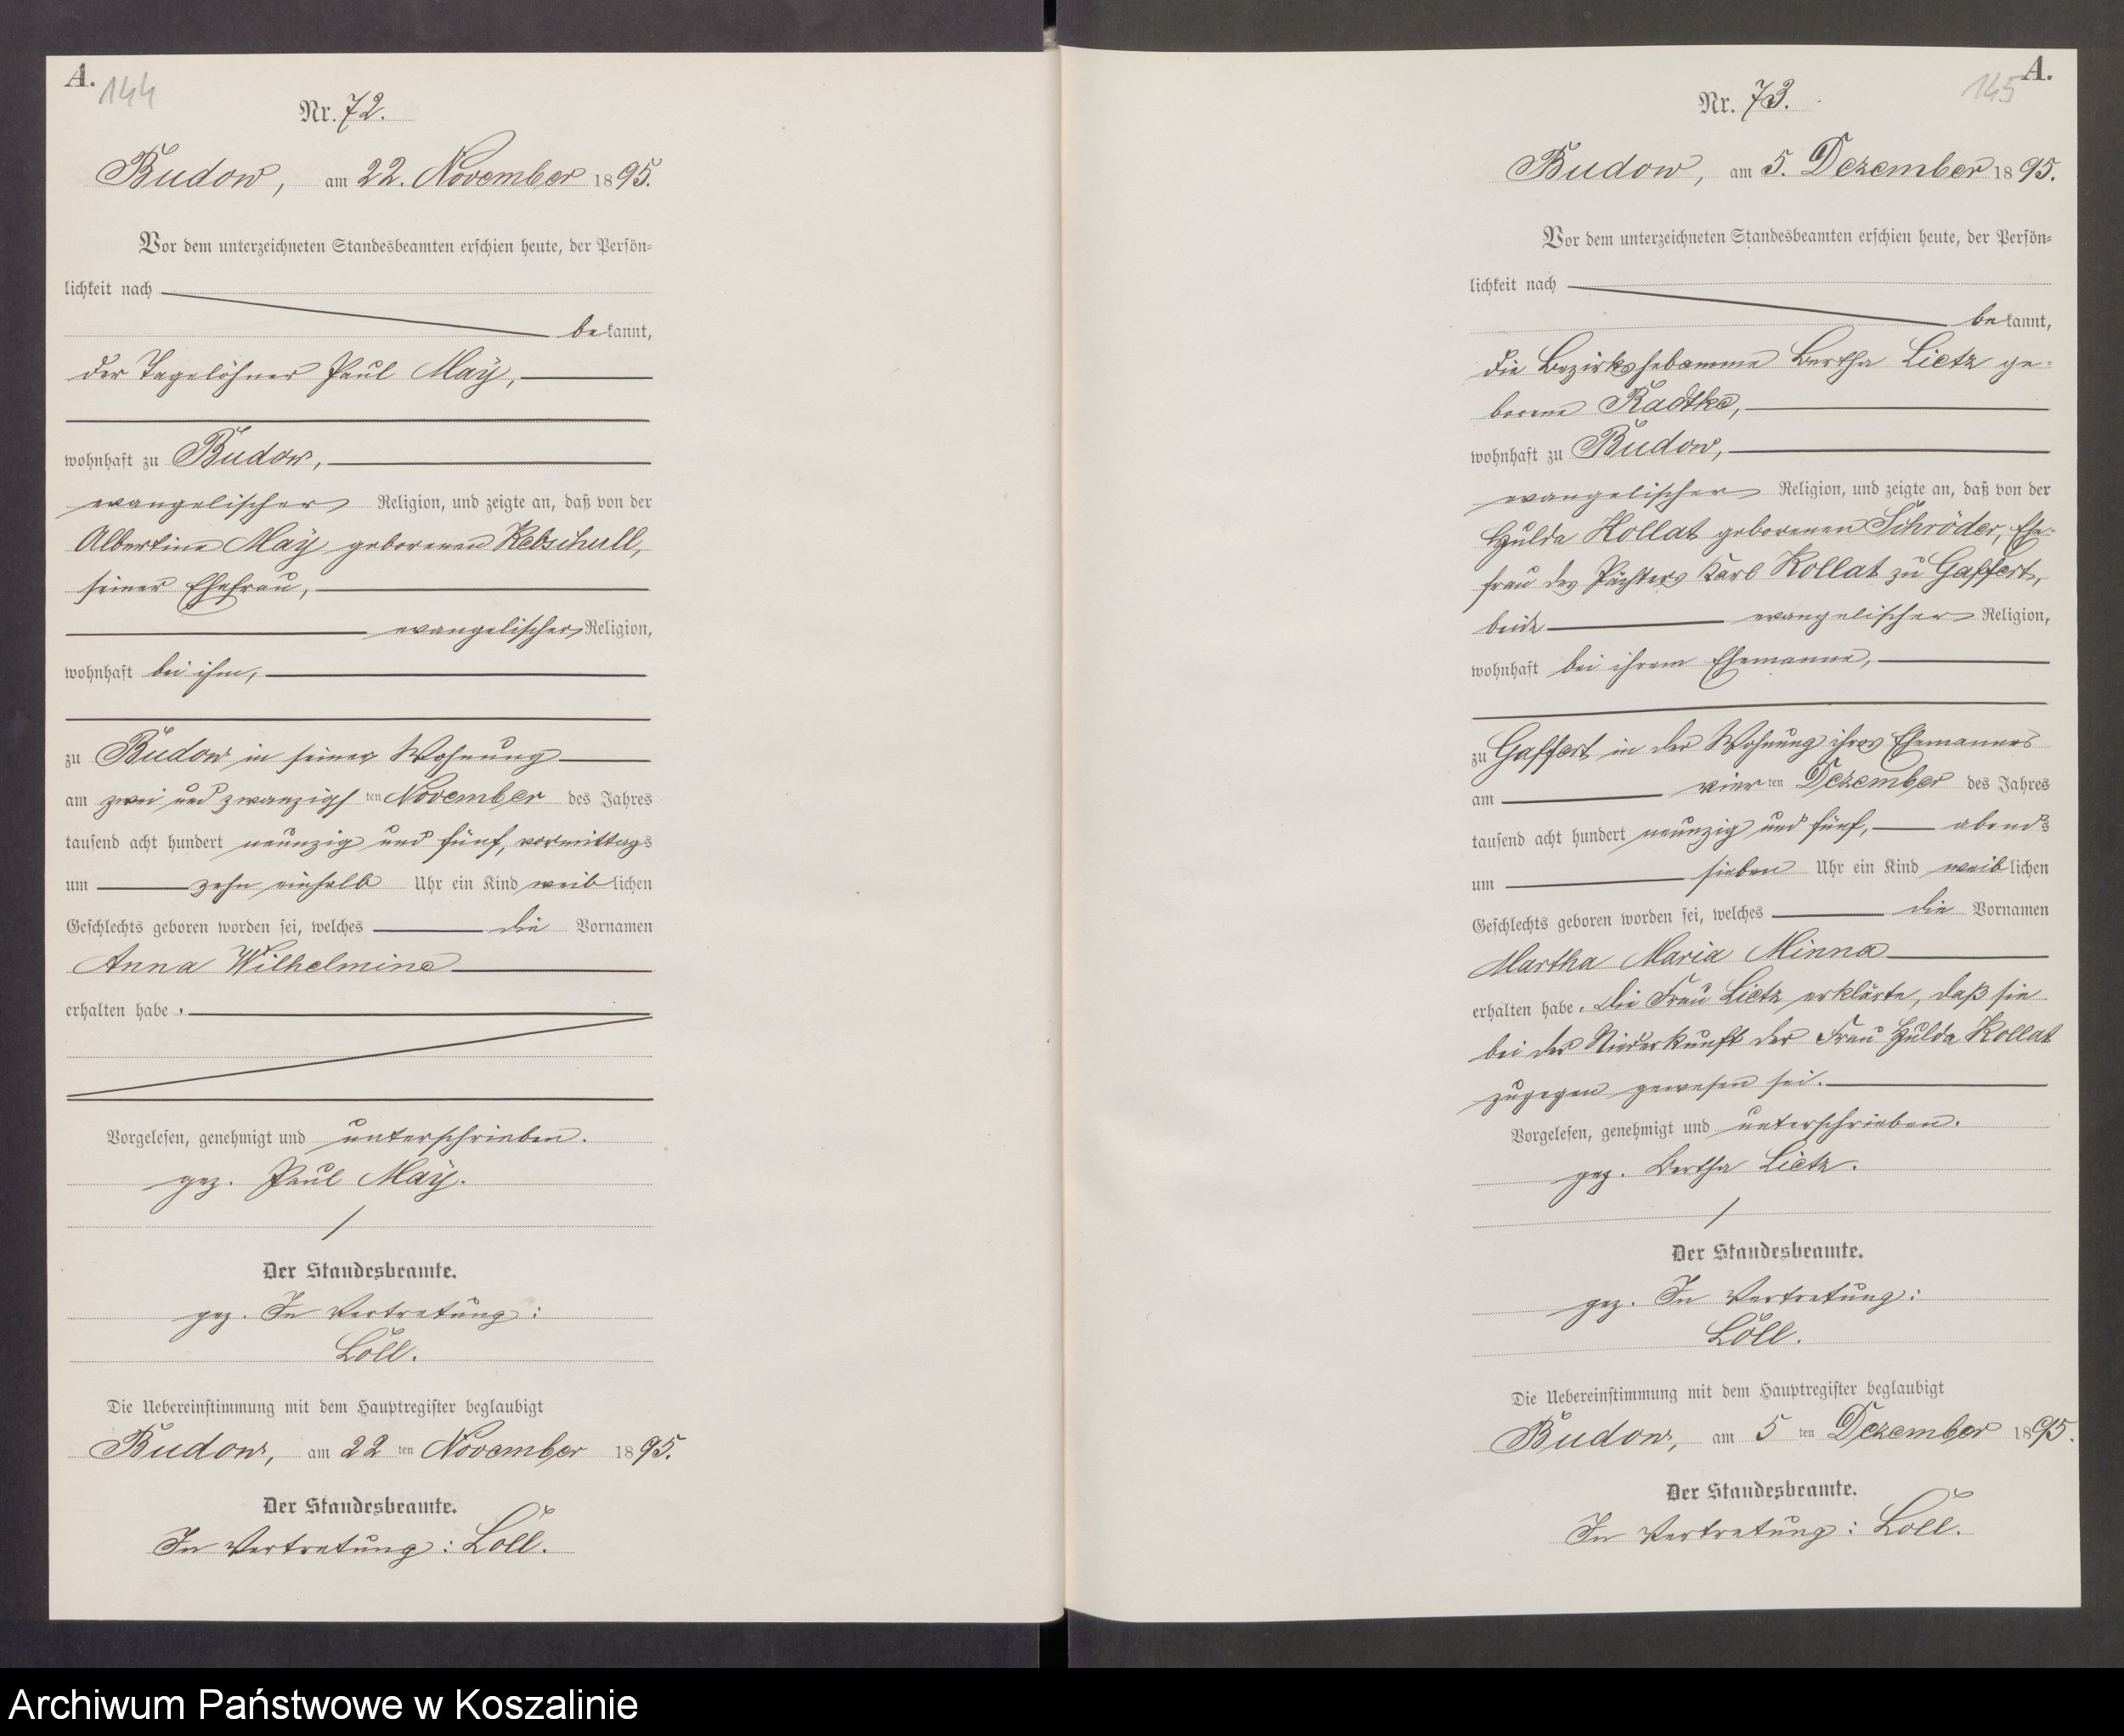 A.
144
Nr. 72.
Budow, am 22. November 1895.
Vor dem unterzeichneten Standesbeamten erschien heute, der Persön-
lichkeit nach
bekannt,
der Tagelöhner Paul Maÿ,
wohnhaft zu Budow,
evangelischer Religion, und zeigte an, daß von der
Albertine Maÿ geborenen Rebschull,
seiner Ehefrau,
evangelischer Religion,
wohnhaft bei ihm,
zu Budow in seiner Wohnung
am zwei und zwanzigsten November des Jahres
tausend acht hundert neunzig und fünf, vormittags
um zehn einhalb Uhr ein Kind weiblichen
Geschlechts geboren worden sei, welches die Vornamen
Anna Wilhelmine
erhalten habe.
Vorgelesen, genehmigt und unterschrieben.
gez. Paul Maÿ.
Der Standesbeamte.
gez. In Vertretung:
Löll.
Die Uebereinstimmung mit dem Hauptregister beglaubigt
Budow, am 22ten November 1895.
Der Standesbeamte.
In Vertretung: Löll.
A.
145
Nr. 73.
Budow, am 5. Dezember 1895.
Vor dem unterzeichneten Standesbeamten erschien heute, der Persön-
lichkeit nach
bekannt,
die Bezirkshebamme Bertha Lietz ge-
borene Radtke,
wohnhaft zu Budow,
evangelischer Religion, und zeigte an, daß von der
Hulda Kollat geborenen Schröder, Ehe-
frau des Pächters Karl Kollat zu Gaffert,
beide evangelischer Religion,
wohnhaft bei ihrem Ehemanne,
zu Gaffert in der Wohnung ihres Ehemannes
am vierten Dezember des Jahres
tausend acht hundert neunzig und fünf, abends
um sieben Uhr ein Kind weiblichen
Geschlechts geboren worden sei, welches die Vornamen
Martha Maria Minna
erhalten habe. Die Frau Lietz erklärte, daß sie
bei der Niederkunft der Frau Hulda Kollat
zugegen gewesen sei.
Vorgelesen, genehmigt und unterschrieben.
gez. Bertha Lietz.
Der Standesbeamte.
gez. In Vertretung:
Löll.
Die Uebereinstimmung mit dem Hauptregister beglaubigt
Budow, am 5ten Dezember 1895.
Der Standesbeamte.
In Vertretung: Löll.
Archiwum Państwowe w Koszalinie